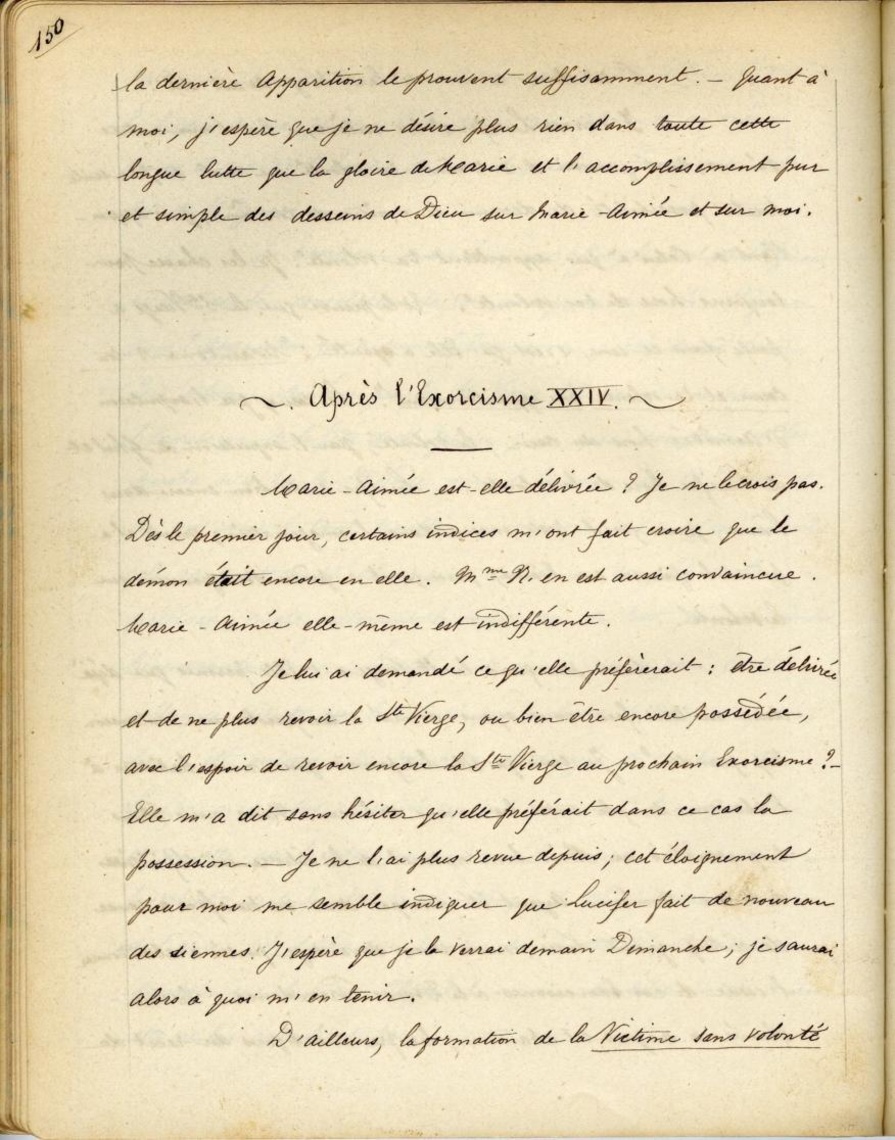 150
la dernière Apparition le prouvent suffisamment. — Quant à
moi, j'espère que je ne désire plus rien dans toute cette
longue lutte que la gloire de Marie et l'accomplissement pur
et simple des desseins de Dieu sur Marie-Aimée et sur moi.
~. Après l'Exorcisme XXIV. ~
Marie-Aimée est-elle délivrée ? Je ne le crois pas.
Dès le premier jour, certains indices m'ont fait croire que le
démon était encore en elle. Mme R. en est aussi convaincue.
Marie-Aimée elle-même est indifférente.
Je lui ai demandé ce qu'elle préfèrerait : être délivrée
et de ne plus revoir la Ste Vierge, ou bien être encore possédée,
avec l'espoir de revoir encore la Ste Vierge au prochain Exorcisme ? —
Elle m'a dit sans hésiter qu'elle préférait dans ce cas la
possession. — Je ne l'ai plus revue depuis ; cet éloignement
pour moi me semble indiquer que Lucifer fait de nouveau
des siennes. J'espère que je la verrai demain Dimanche ; je saurai
alors à quoi m'en tenir.
D'ailleurs, la formation de la Victime sans volonté